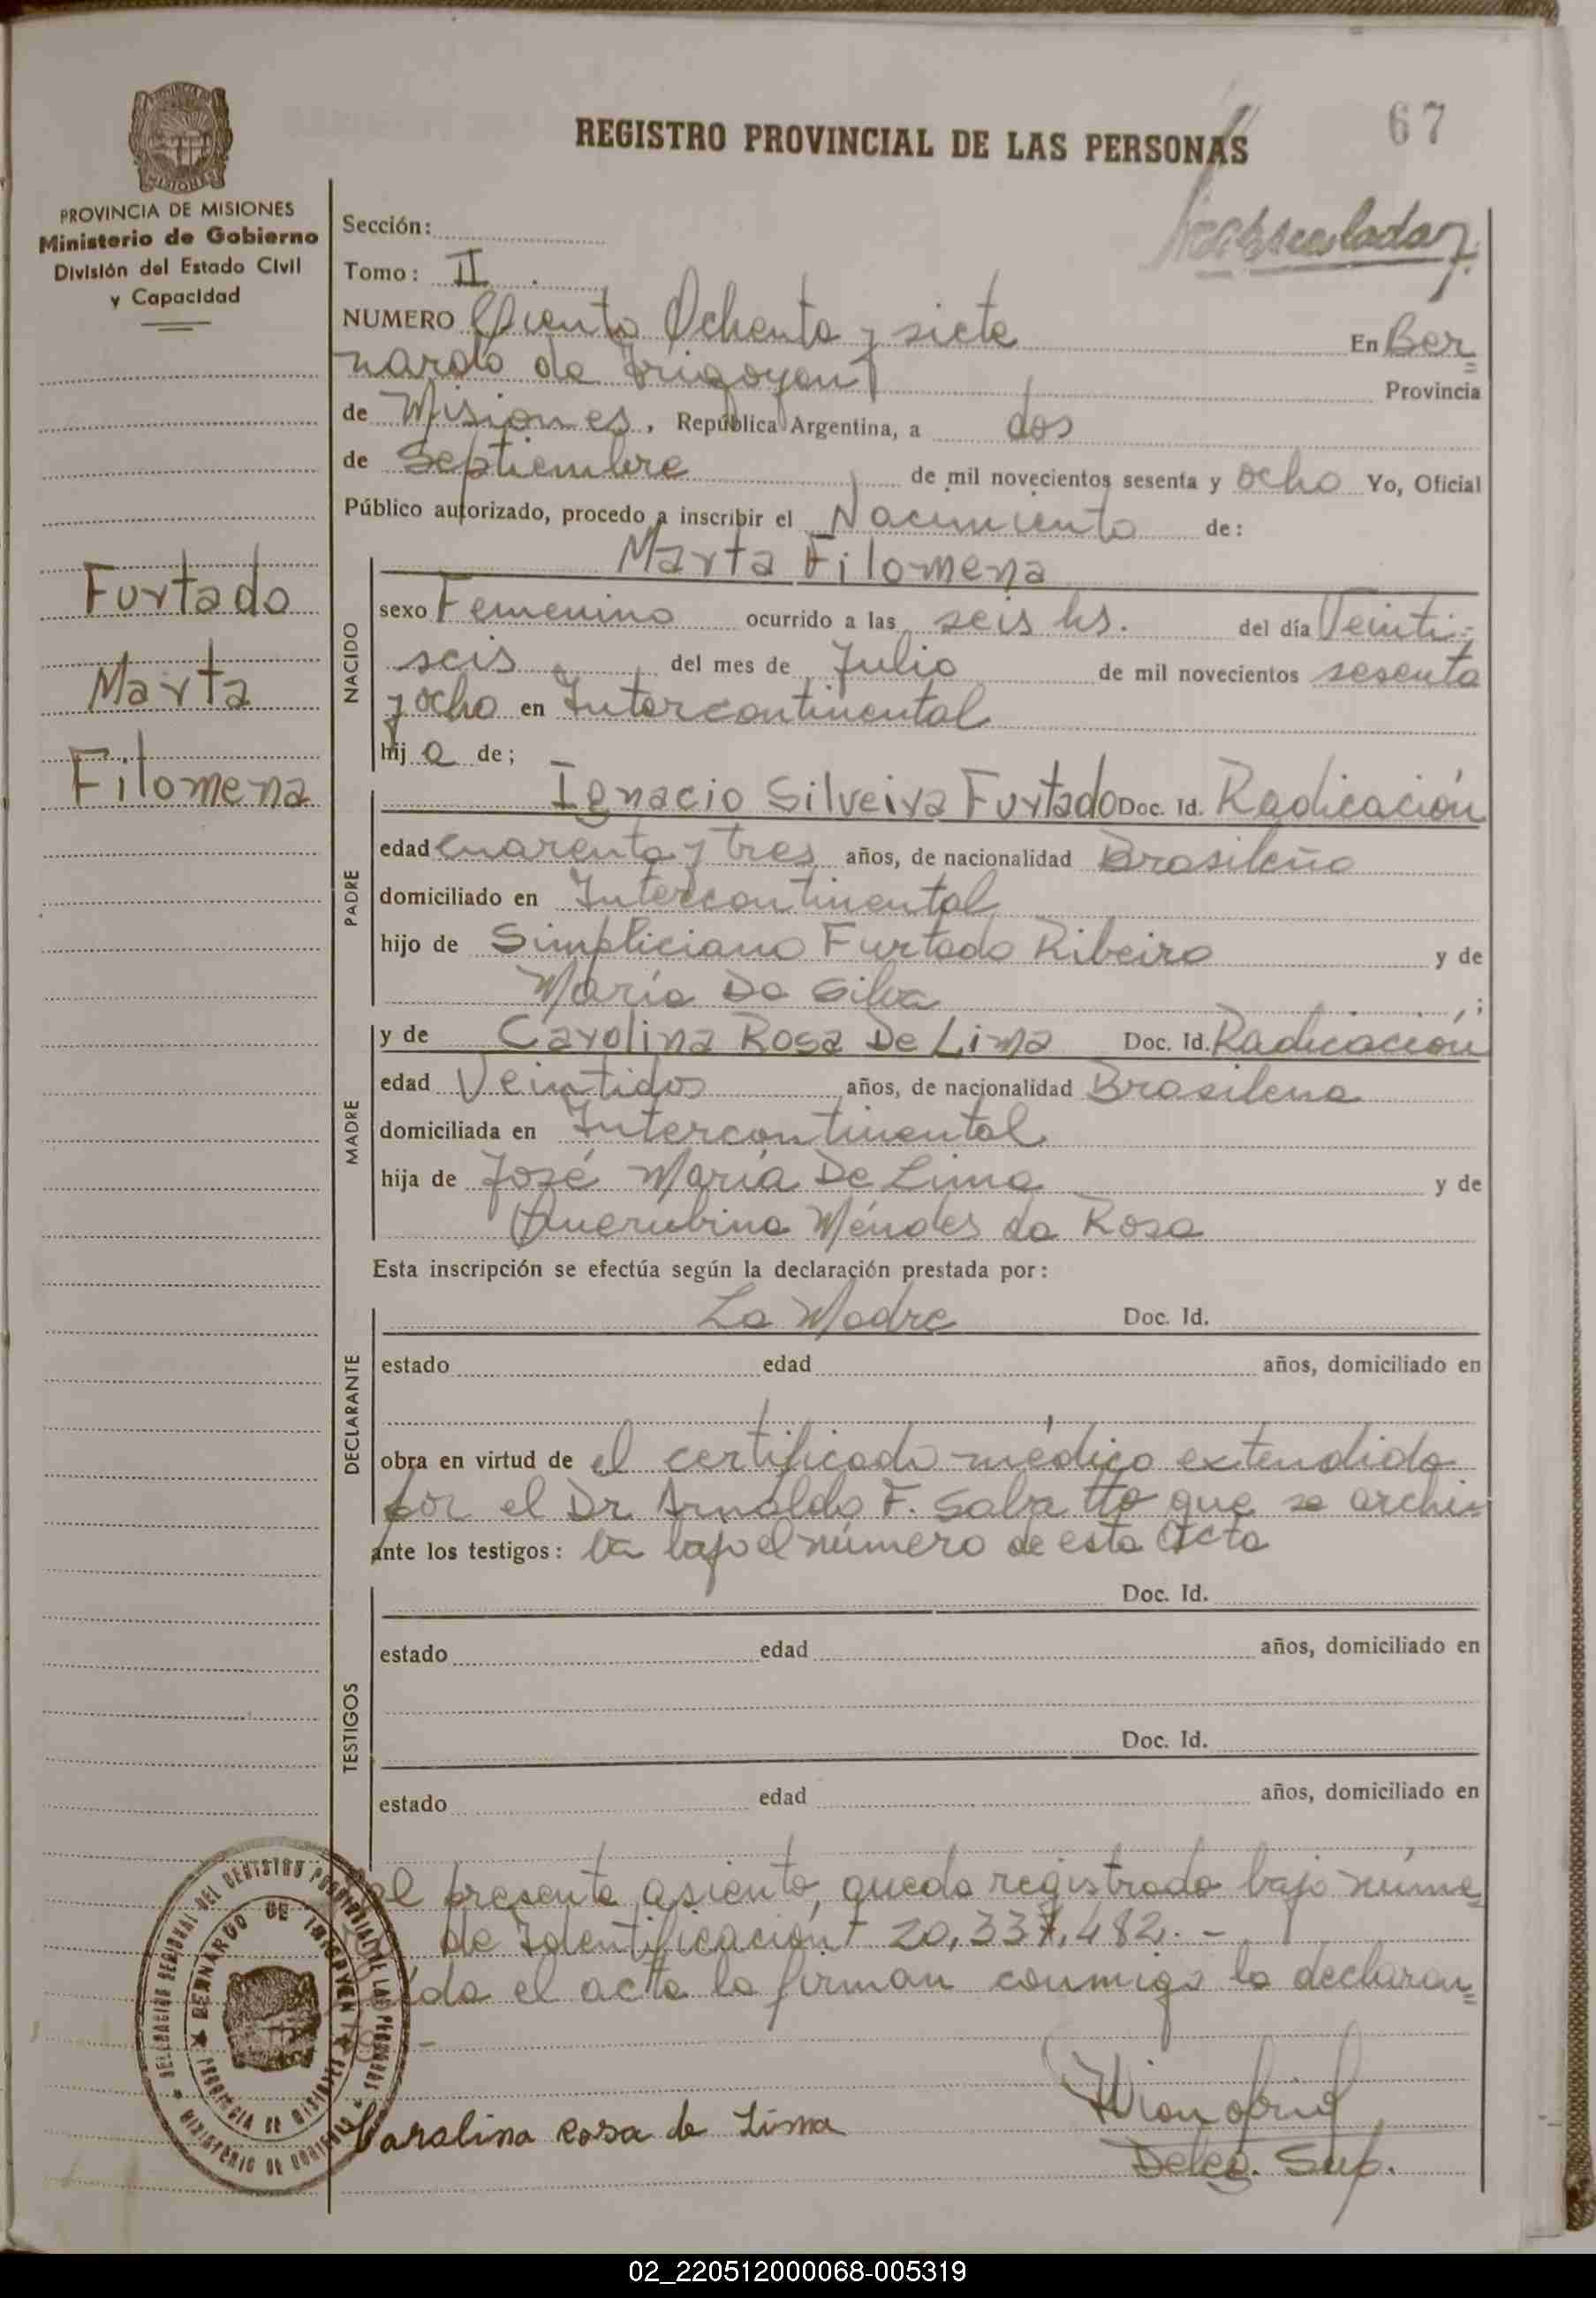 67
REGISTRO PROVINCIAL DE LAS PERSONAS
PROVINCIA DE MISIONES
Ministerio de Gobierno
División del Estado Civil
y Capacidad
Sección:
Tomo: II
NUMERO Ciento Ochenta y siete En Ber=
nardo de Irigoyen Provincia
de Misiones, República Argentina, a dos
de Septiembre de mil novecientos sesenta y ocho Yo, Oficial
Público autorizado, procedo a inscribir el Nacimiento de:
Furtado
Marta
Filomena
NACIDO
Marta Filomena
sexo Femenino ocurrido a las seis hs. del día Veinti=
seis del mes de Julio de mil novecientos sesenta
y ocho en Intercontinental
hija de;
PADRE
Ignacio Silveira Furtado Doc. Id. Radicación
edad cuarenta y tres años, de nacionalidad Brasileña
domiciliado en Intercontinental
hijo de Simpliciano Furtado Ribeiro y de
María Da Silva ;
MADRE
y de Carolina Rosa De Lima Doc. Id. Radicación
edad Veintidos años, de nacionalidad Brasilena
domiciliada en Intercontinental
hija de José María De Lima y de
Querubina Méndes da Rosa
Esta inscripción se efectúa según la declaración prestada por:
DECLARANTE
La Madre Doc. Id.
estado edad años, domiciliado en
obra en virtud de el certificado médico extendido
por el Dr Arnoldo F. que se archi=
ante los testigos: va bajo el número de esta Acta
TESTIGOS
Doc. Id.
estado edad años, domiciliado en
Doc. Id.
estado edad años, domiciliado en
el presente asiento, queda registrado bajo núme=
de Identificación 20,337,482.-
el acta la firman conmigo la declaran=
DELEGACION REGIONAL DEL REGISTRO PROVINCIAL DE LAS PERSONAS
BERNARDO DE IRIGOYEN
PROVINCIA DE MISIONES
MINISTERIO DE GOBIERNO
Carolina Rosa de Lima
Deleg. Sup.
02_220512000068-005319